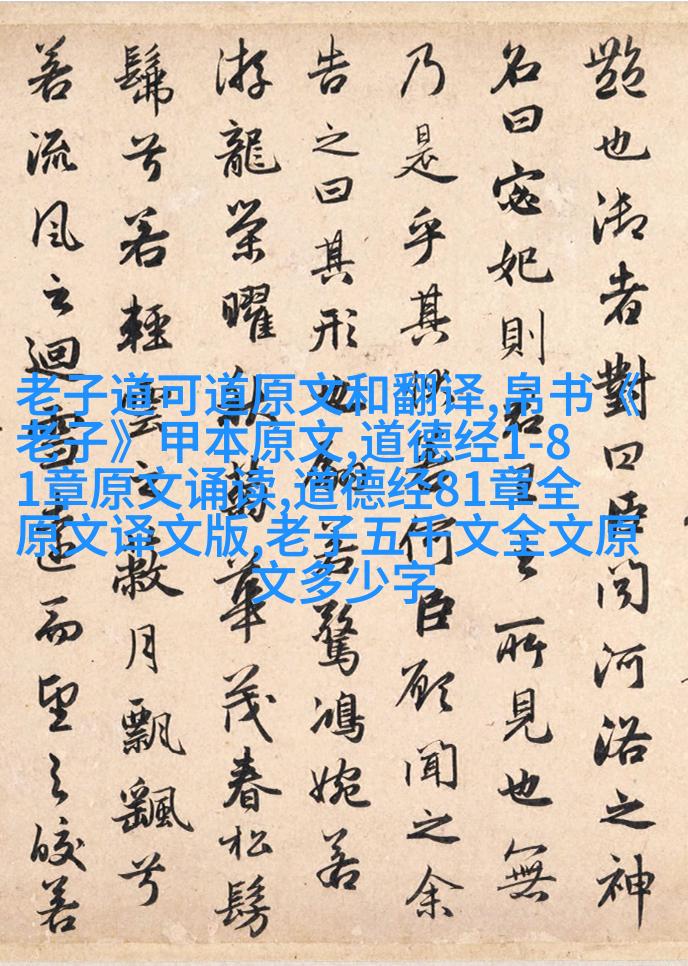 艷也御者對曰臣聞河洛之神
名曰宓妃則君王之所見也無
乃是乎其狀若何臣願聞之余
告之曰其形也翩若驚鴻婉若
游龍榮曜秋菊華茂春松髣
髴兮若輕雲之蔽月飄颻兮
若流風之迴雪遠而望之皎若
老子道可道原文和翻译,帛书《
老子》甲本原文,道德经1-8
1章原文诵读,道德经81章全
原文译文版,老子五千文全文原
文多少字